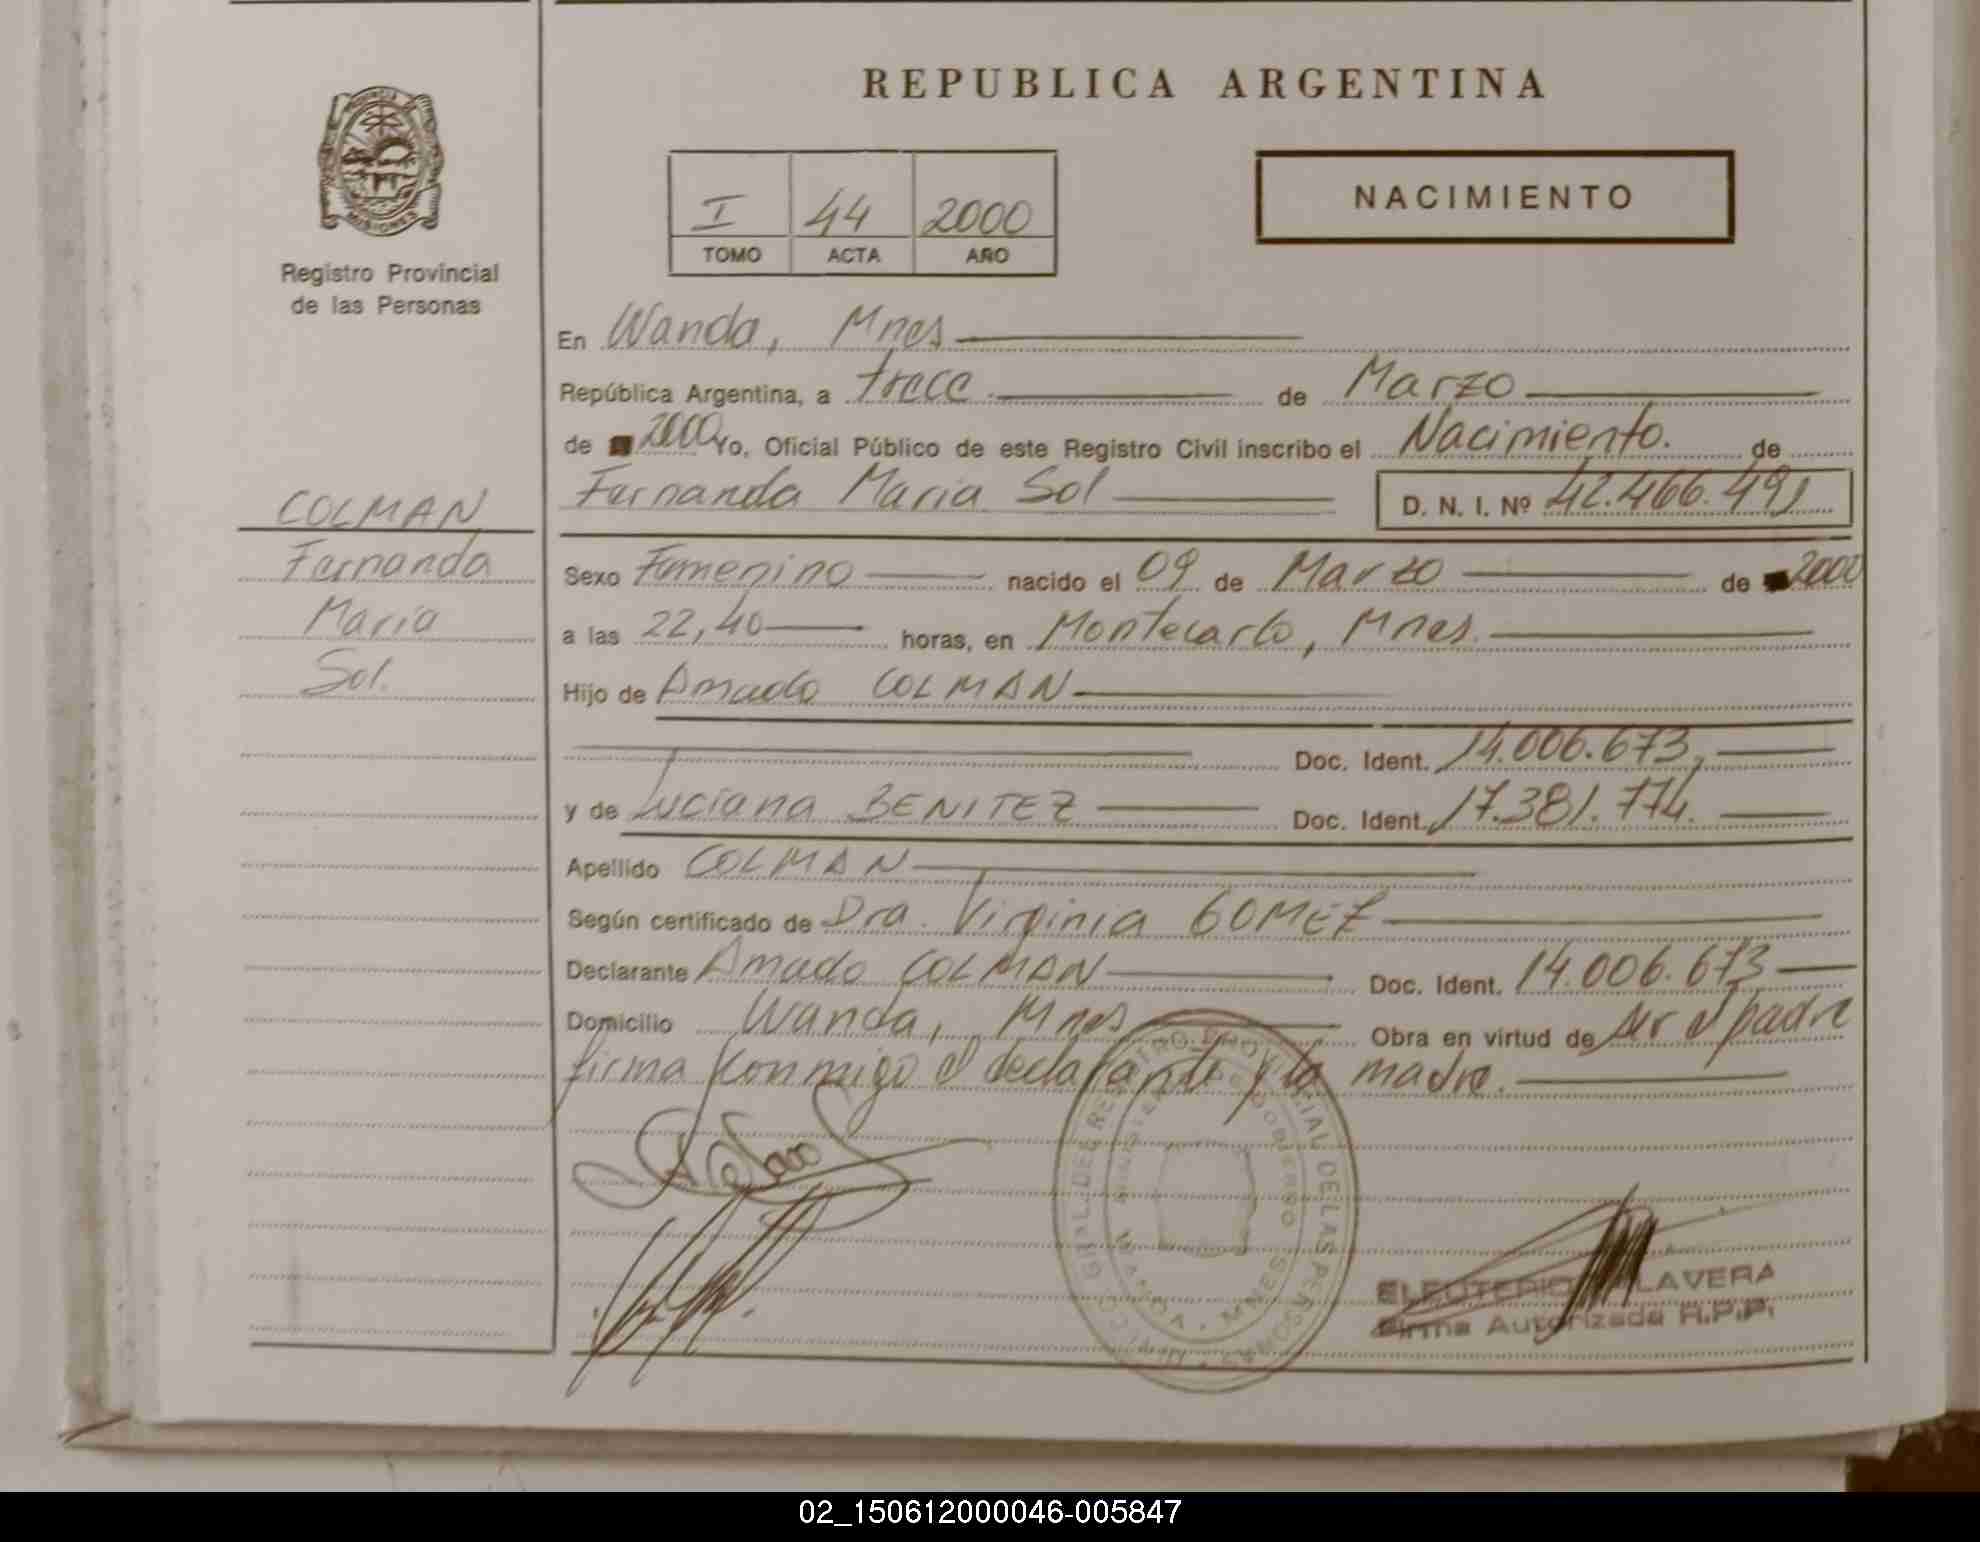 REPUBLICA ARGENTINA
PROVINCIA
MISIONES
Registro Provincial
de las Personas
I 44 2000
TOMO ACTA AÑO
NACIMIENTO
En Wanda, Mnes
República Argentina, a trece de Marzo
de 2000 Yo, Oficial Público de este Registro Civil inscribo el Nacimiento. de
Fernanda Maria Sol D. N. I. Nº 42.466.491
COLMAN
Fernanda
María
Sol.
Sexo Femenino nacido el 09 de Marzo de 2000
a las 22,40 horas, en Montecarlo, Mnes.
Hijo de Amado COLMAN
Doc. Ident. 14.006.673,
y de Luciana BENITEZ Doc. Ident. 17.381.774.
Apellido COLMAN
Según certificado de Dra. Virginia GOMEZ
Declarante Amado COLMAN Doc. Ident. 14.006.673
Domicilio Wanda, Mnes Obra en virtud de ser el padre
firma conmigo el declarante y la madre.
GRAL. DEL REGISTRO PROVINCIAL DE LAS PERSONAS
WANDA - MNES
ELEUTERIO LAVERA
Firma Autorizada R.P.P.
02_150612000046-005847